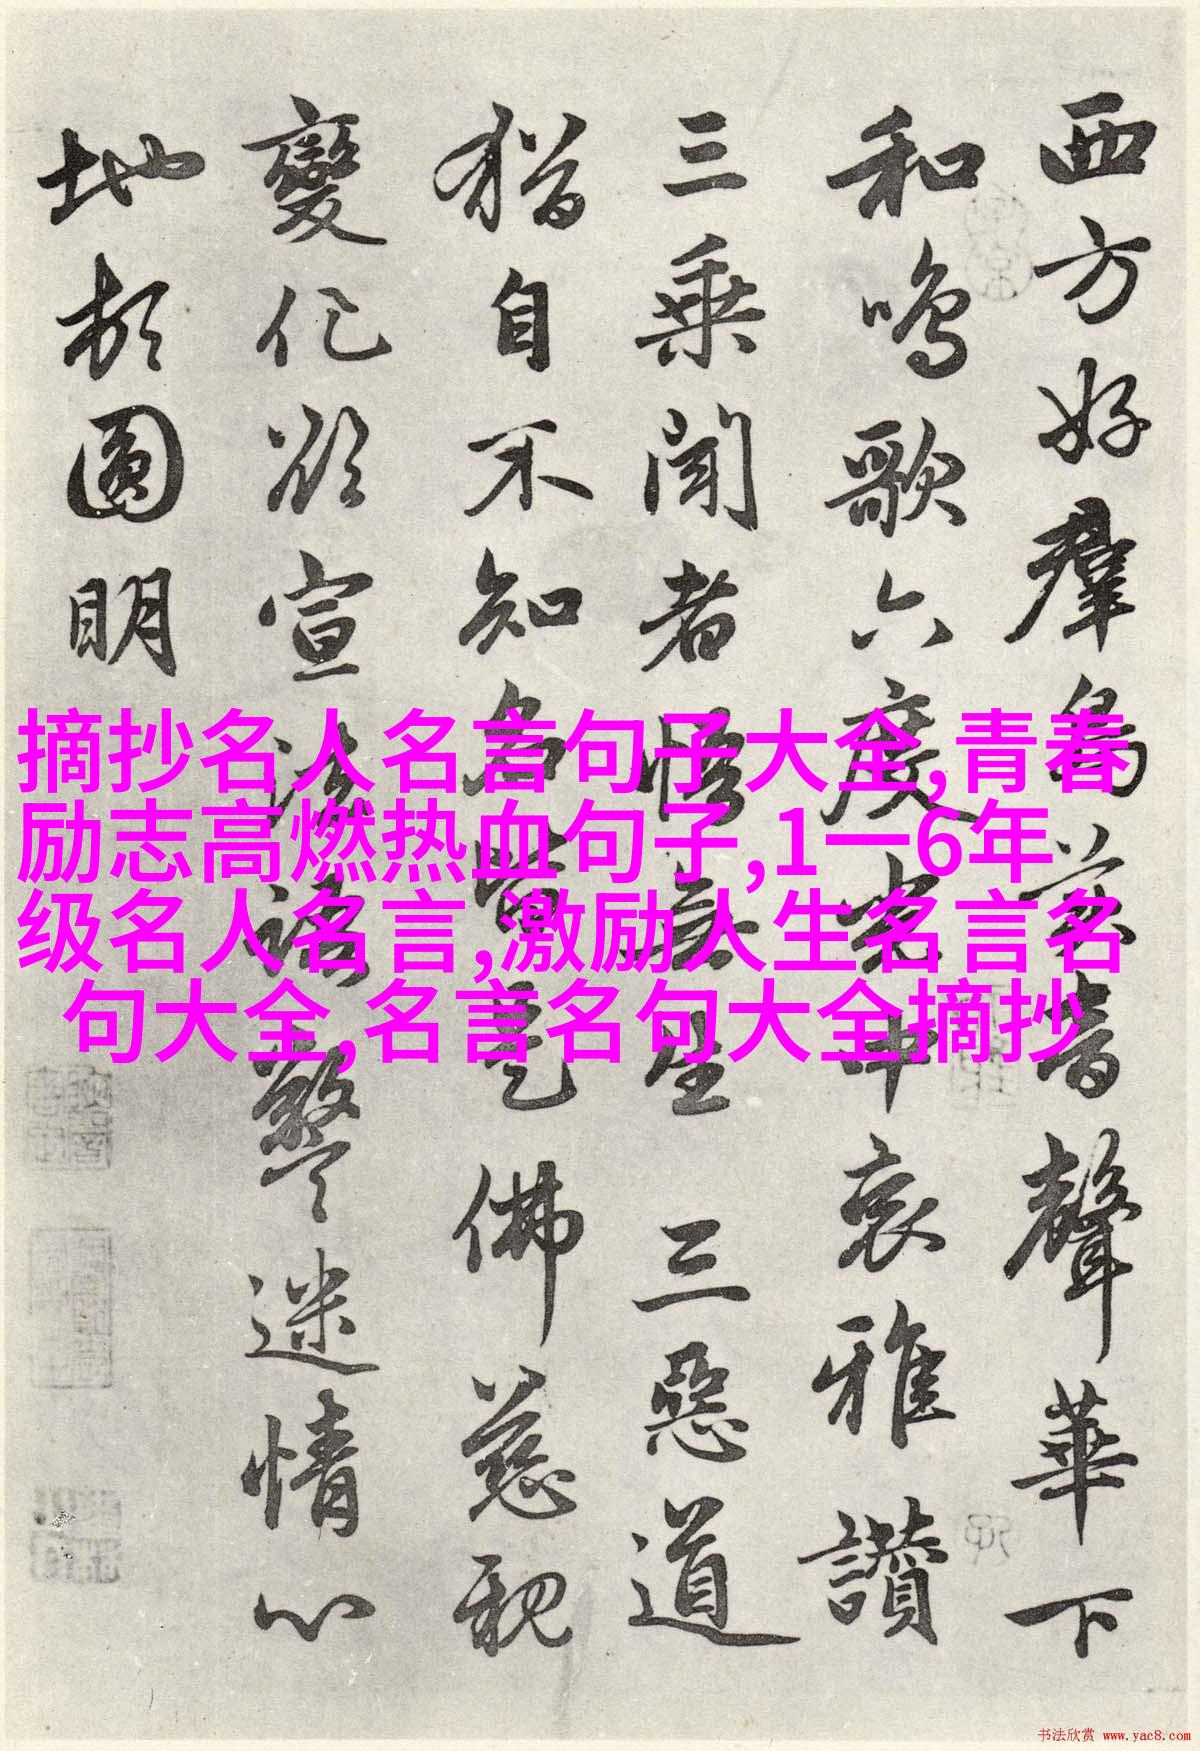 西方好羣鳥美音聲華下
和鳴歌六度光中哀雅讚
三乘聞者悟無生三惡道
猶自不知名皆是佛慈親
變化欲宣法語警迷情心
地頓圓明
摘抄名人名言句子大全,青春
励志高燃热血句子,1一6年
级名人名言,激励人生名言名
句大全,名言名句大全摘抄
书法欣赏 www.yac8.com